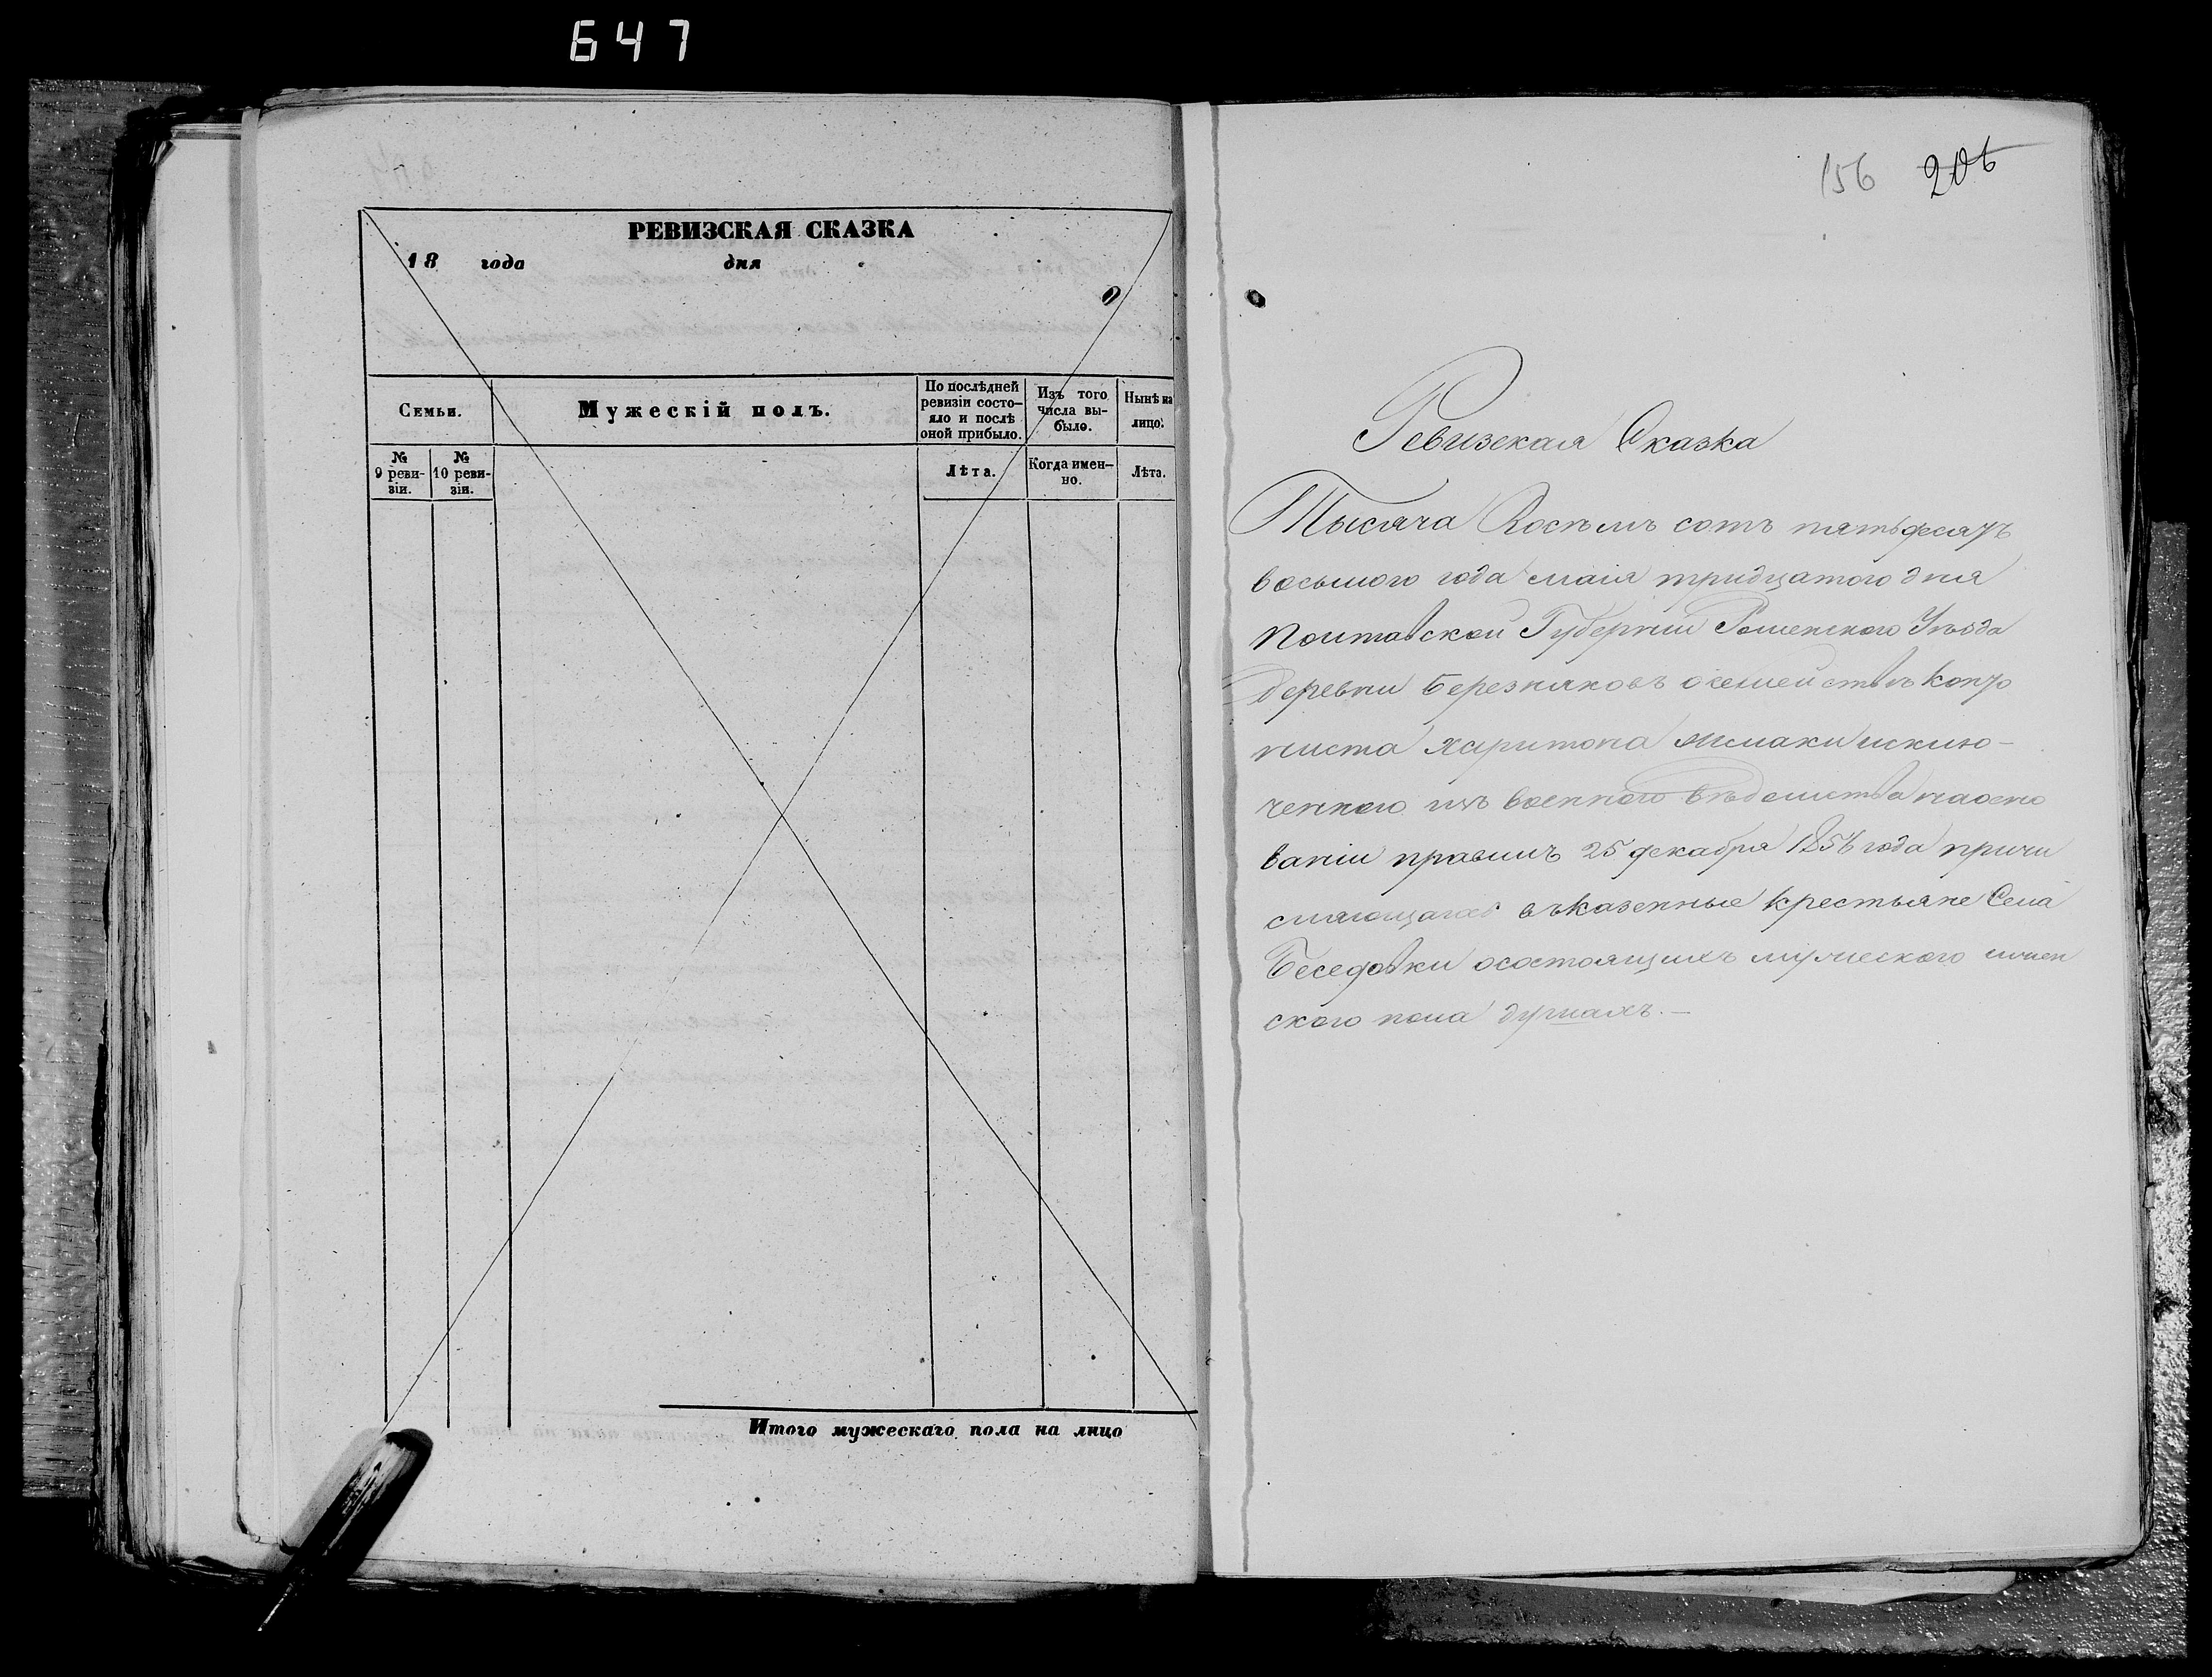 647
РЕВИЗСКАЯ СКАЗКА
18 года дня
Семьи.
Мужескій полъ.
По послѣдней
ревизіи состо-
яло и послѣ
оной прибыло.
Изъ того
числа вы-
было.
Нынѣ на
лицо.
№
9 реви-
зіи.
№
10 реви-
зіи.
Лѣта.
Когда имен-
но.
Лѣта.
Итого мужескаго пола на лицо
156 206
Ревизская Сказка
Тысяча Восѣмъ сотъ пятьдесятъ
восьмого года маія тридцатого дня
Полтавской Губернии Роменского Уѣзда
деревни Березняковъ осемействѣ
Харитона исклю-
ченного изъ военного вѣдомства наосно
ваніи правилъ 25 декабря 1856 года причи
въказенные крестьяне Села
Беседовки осостоящихъ мужеского ижен
ского пола душахъ.—